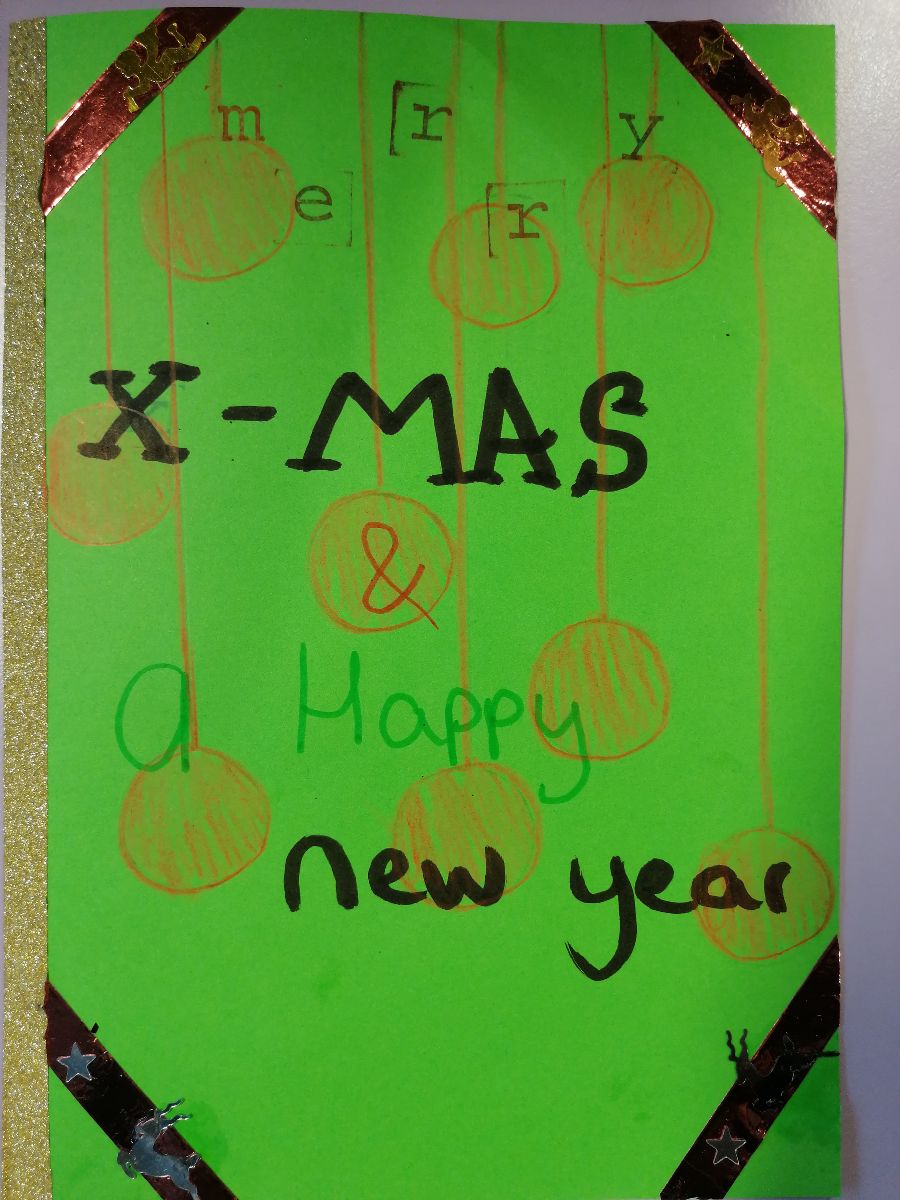 merry
X-MAS
&
a Happy
new year